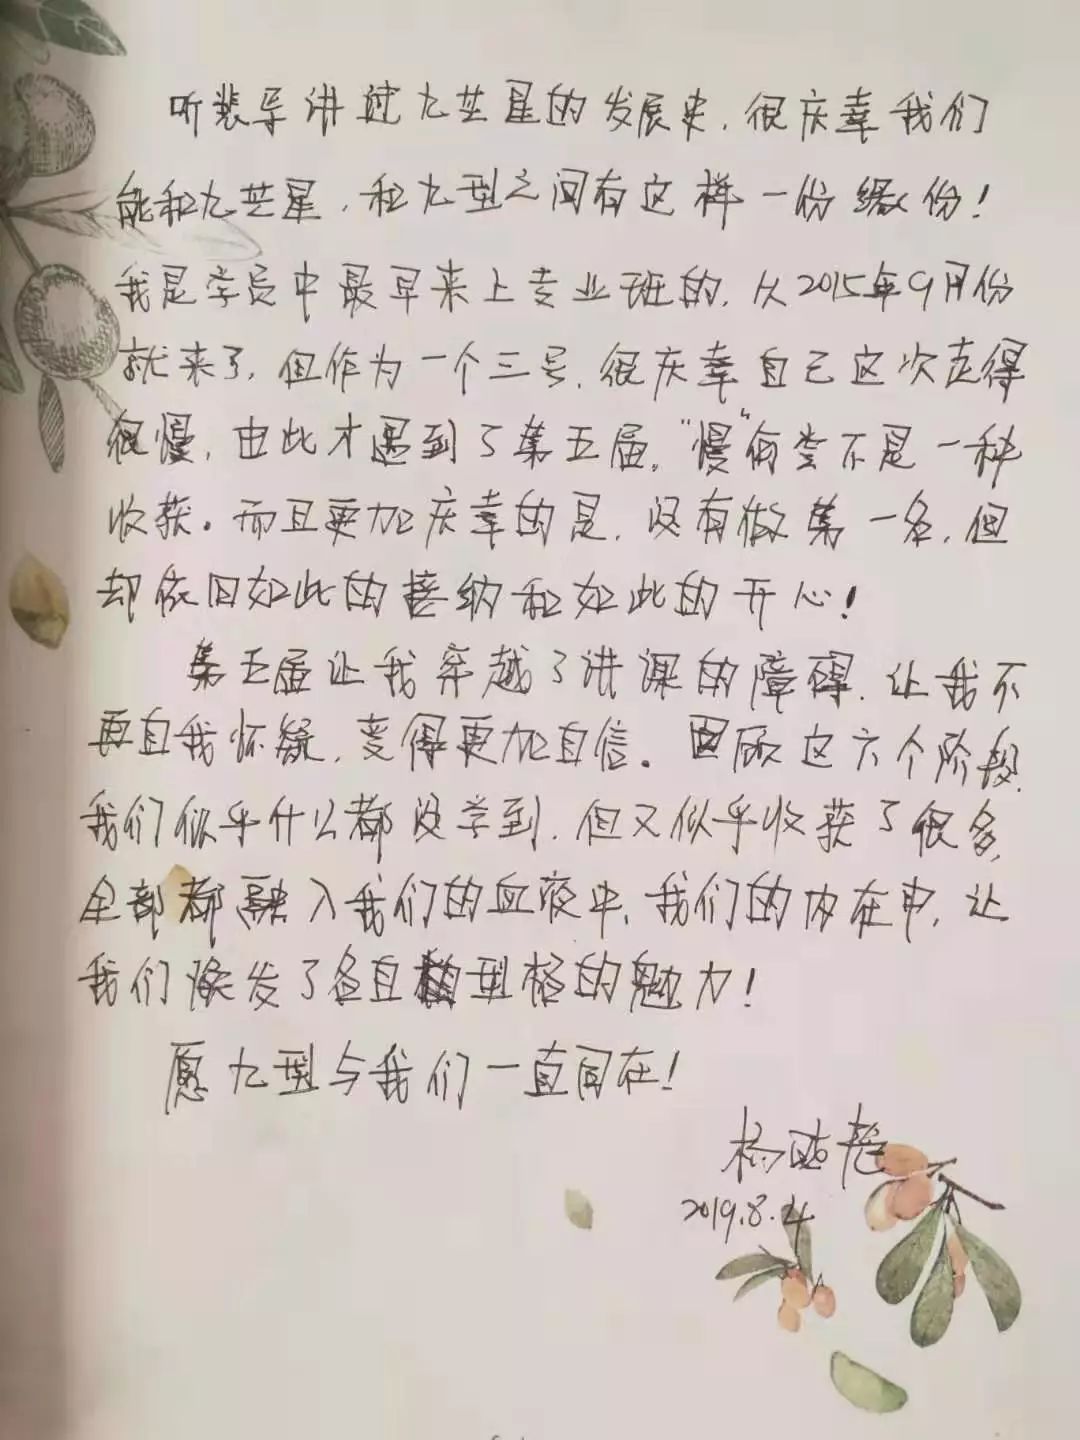 听裴导讲过九芒星的发展史，很庆幸我们
能和九芒星，和九型之间有这样一份缘份！
我是学员中最早来上专业班的，从2015年9月份
就来了，但作为一个三号，很庆幸自己这次走得
很慢，由此才遇到了第五届，“慢”何尝不是一种
收获。而且更加庆幸的是，没有做第一名，但
却依旧如此的接纳和如此的开心！
第五届让我穿越了讲课的障碍，让我不
再自我怀疑，变得更加自信。回顾这六个阶段，
我们似乎什么都没学到，但又似乎收获了很多，
全部都融入我们的血液中，我们的内在中，让
我们焕发了各自型格的魅力！
愿九型与我们一直同在！
杨
2019.8.4